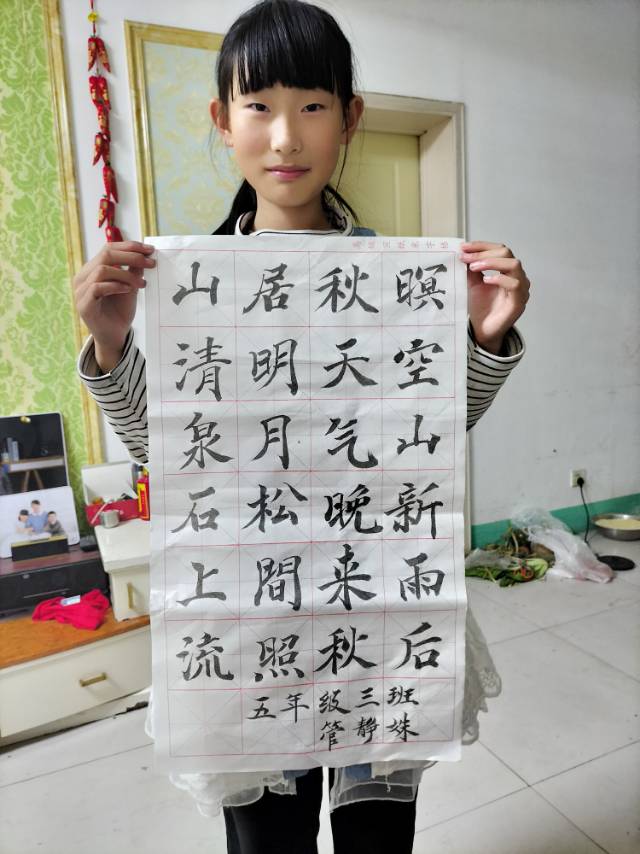 山居秋暝
空山新雨后
天气晚来秋
明月松間照
清泉石上流
五年级三班
管静姝